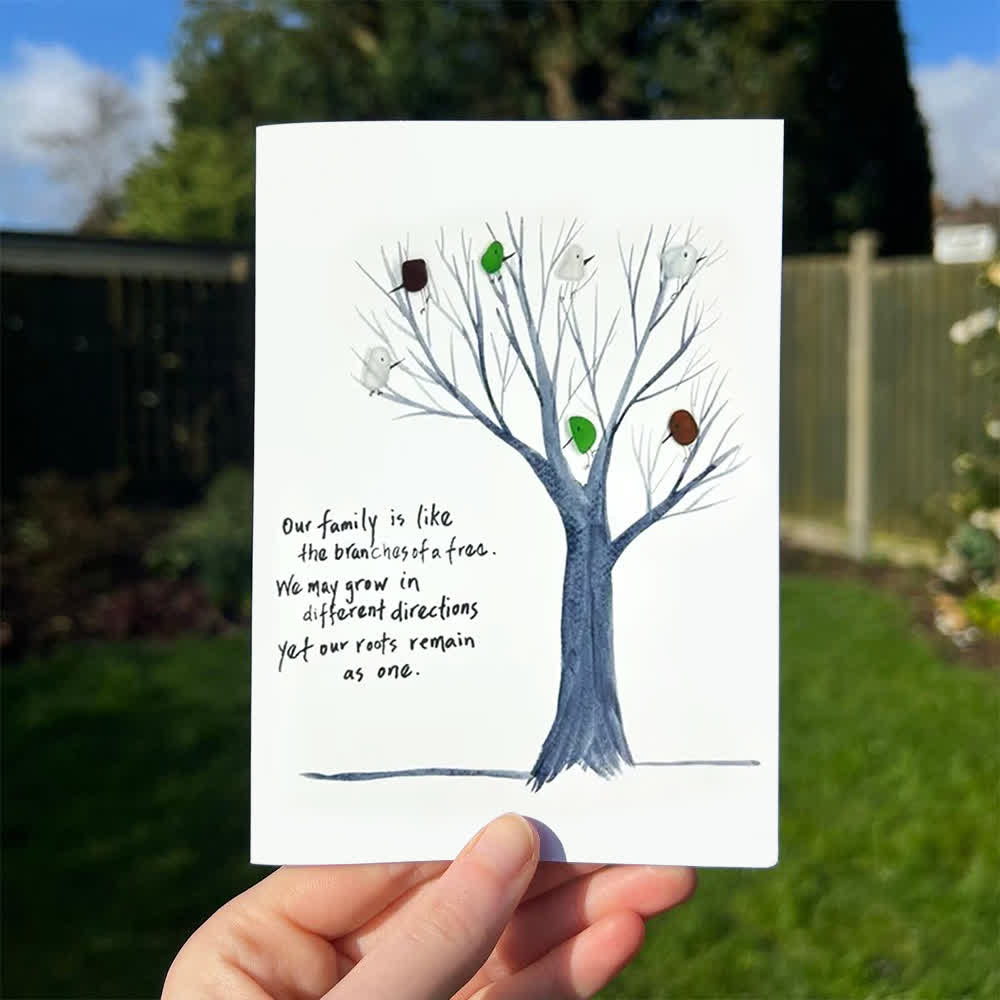 Our family is like
the branches of a tree.
We may grow in
different directions
yet our roots remain
as one.